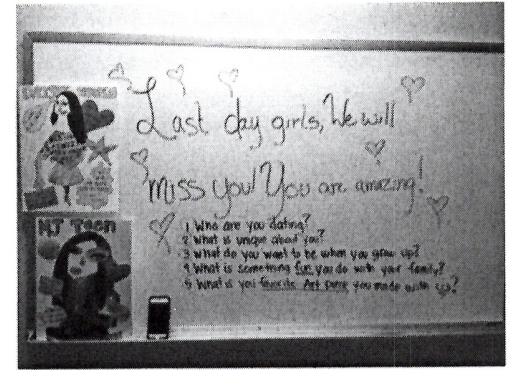 Last day girls, We will
miss you! You are amazing!
1 Who are you dating?
2 What is unique about you?
3 What do you want to be when you grow up?
4 What is something fun you do with your family?
5 What is you favorite Art piece you made with us?
Teen